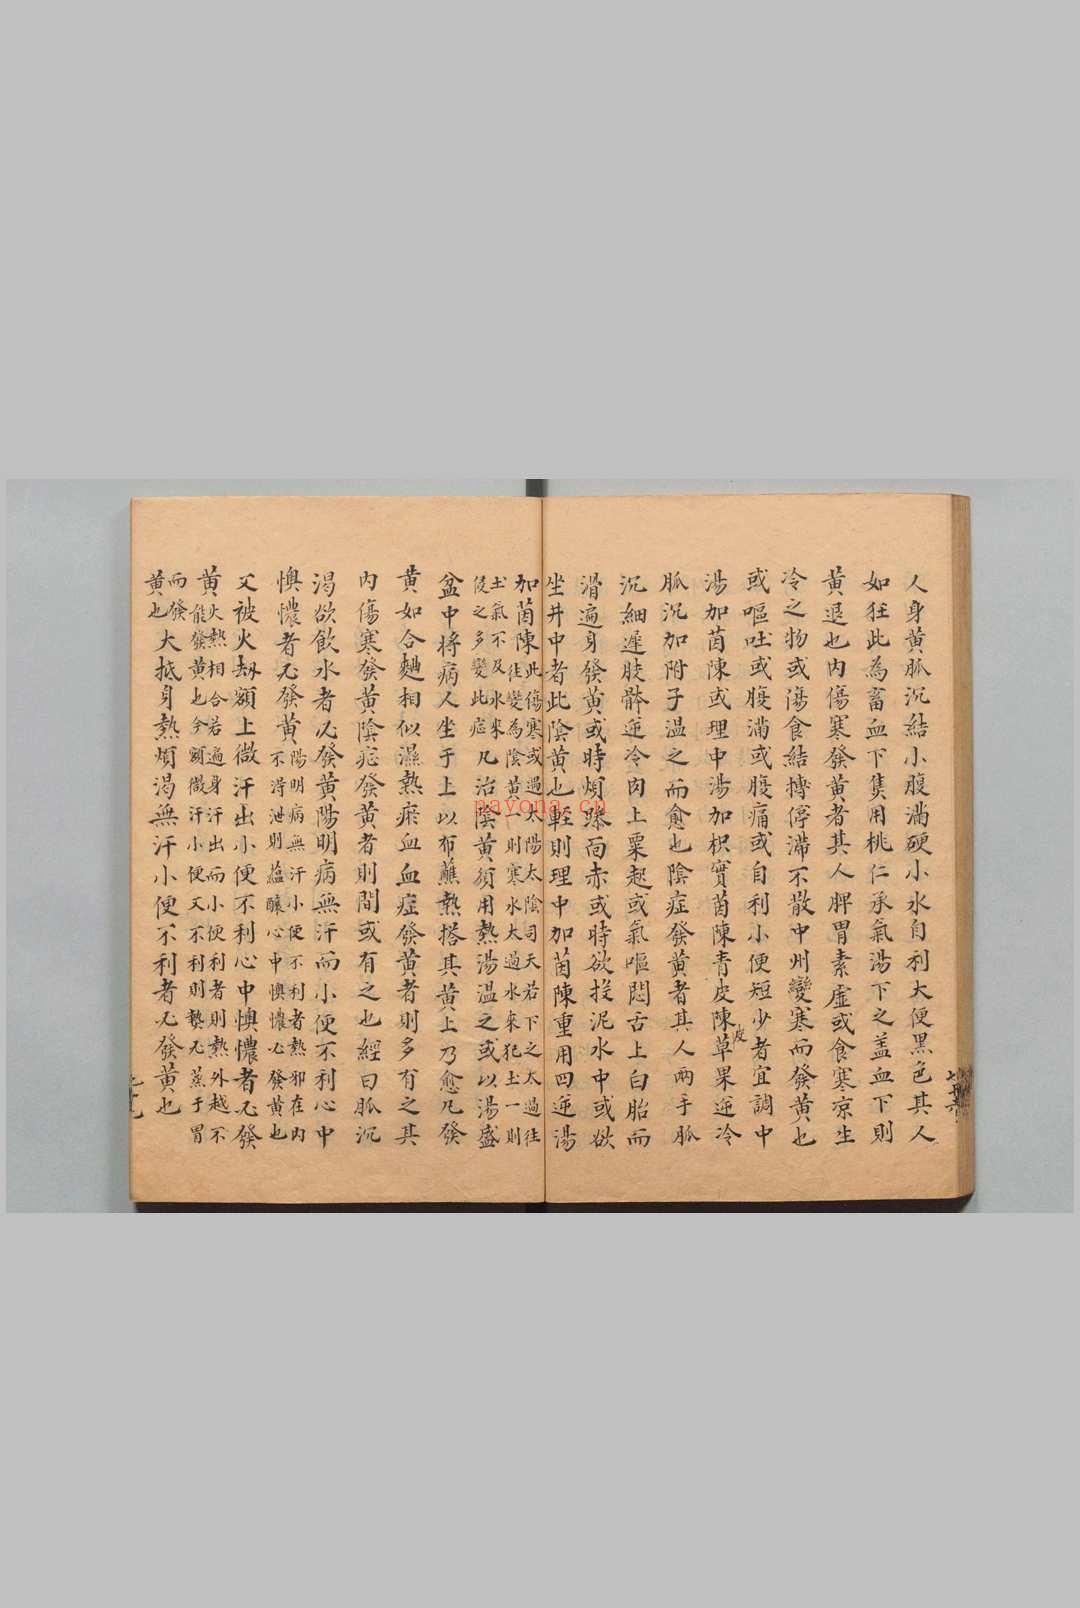 人身黄脈沉結小腹滿硬小水自利大便黑色其人
如狂此為畜血下隻用桃仁承氣湯下之盖血下則
黄退也内傷寒發黄者其人脾胃素虛或食寒凉生
冷之物或傷食結搏停滞不散中州變寒而發黄也
或嘔吐或腹滿或腹痛或自利小便短少者宜調中
湯加茵陳或理中湯加枳實茵陳青皮陳皮草果逆冷
脈沉加附子温之而愈也陰症發黄者其人兩手脈
沉細遲肢體逆冷肉上粟起或氣嘔悶舌上白胎而
滑遍身發黄或時煩躁面赤或時欲投泥水中或欲
坐井中者此陰黄也輕則理中加茵陳重用四逆湯
加茵陳此傷寒或遇太陽太陰司天若下之太過往
往變為陰黄一則寒水太過水來犯土一則
土氣不及水來
侵之多變此症凡治陰黄須用熱湯温之或以湯盛
盆中將病人坐于上以布蘸熱搭其黄上乃愈凡發
黄如合麯相似濕熱瘀血血症發黄者則多有之其
内傷寒發黄陰症發黄者則間或有之也經曰脈沉
渴欲飲水者必發黄陽明病無汗而小便不利心中
懊憹者必發黄陽明病無汗小便不利者熱邪在内
不得泄則蘊釀心中懊憹必發黄也
又被火劫額上微汗出小便不利心中懊憹者必發
黄火熱相合若遍身汗出而小便利者則熱外越不
能發黄也今額微汗小便又不利則熱必蒸于胃
而發
黄也大抵身熱煩渴無汗小便不利者必發黄也
payona.cn